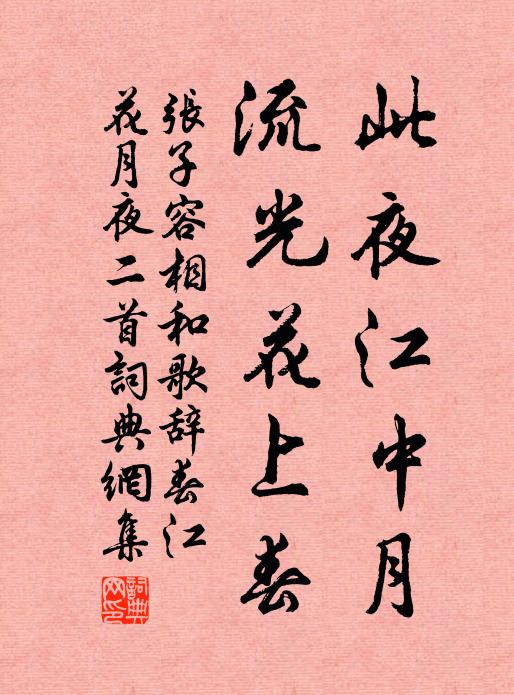 此夜江中月
流光花上春
張子容相和歌辞春江
花月夜二首詞典網集
詞典網印